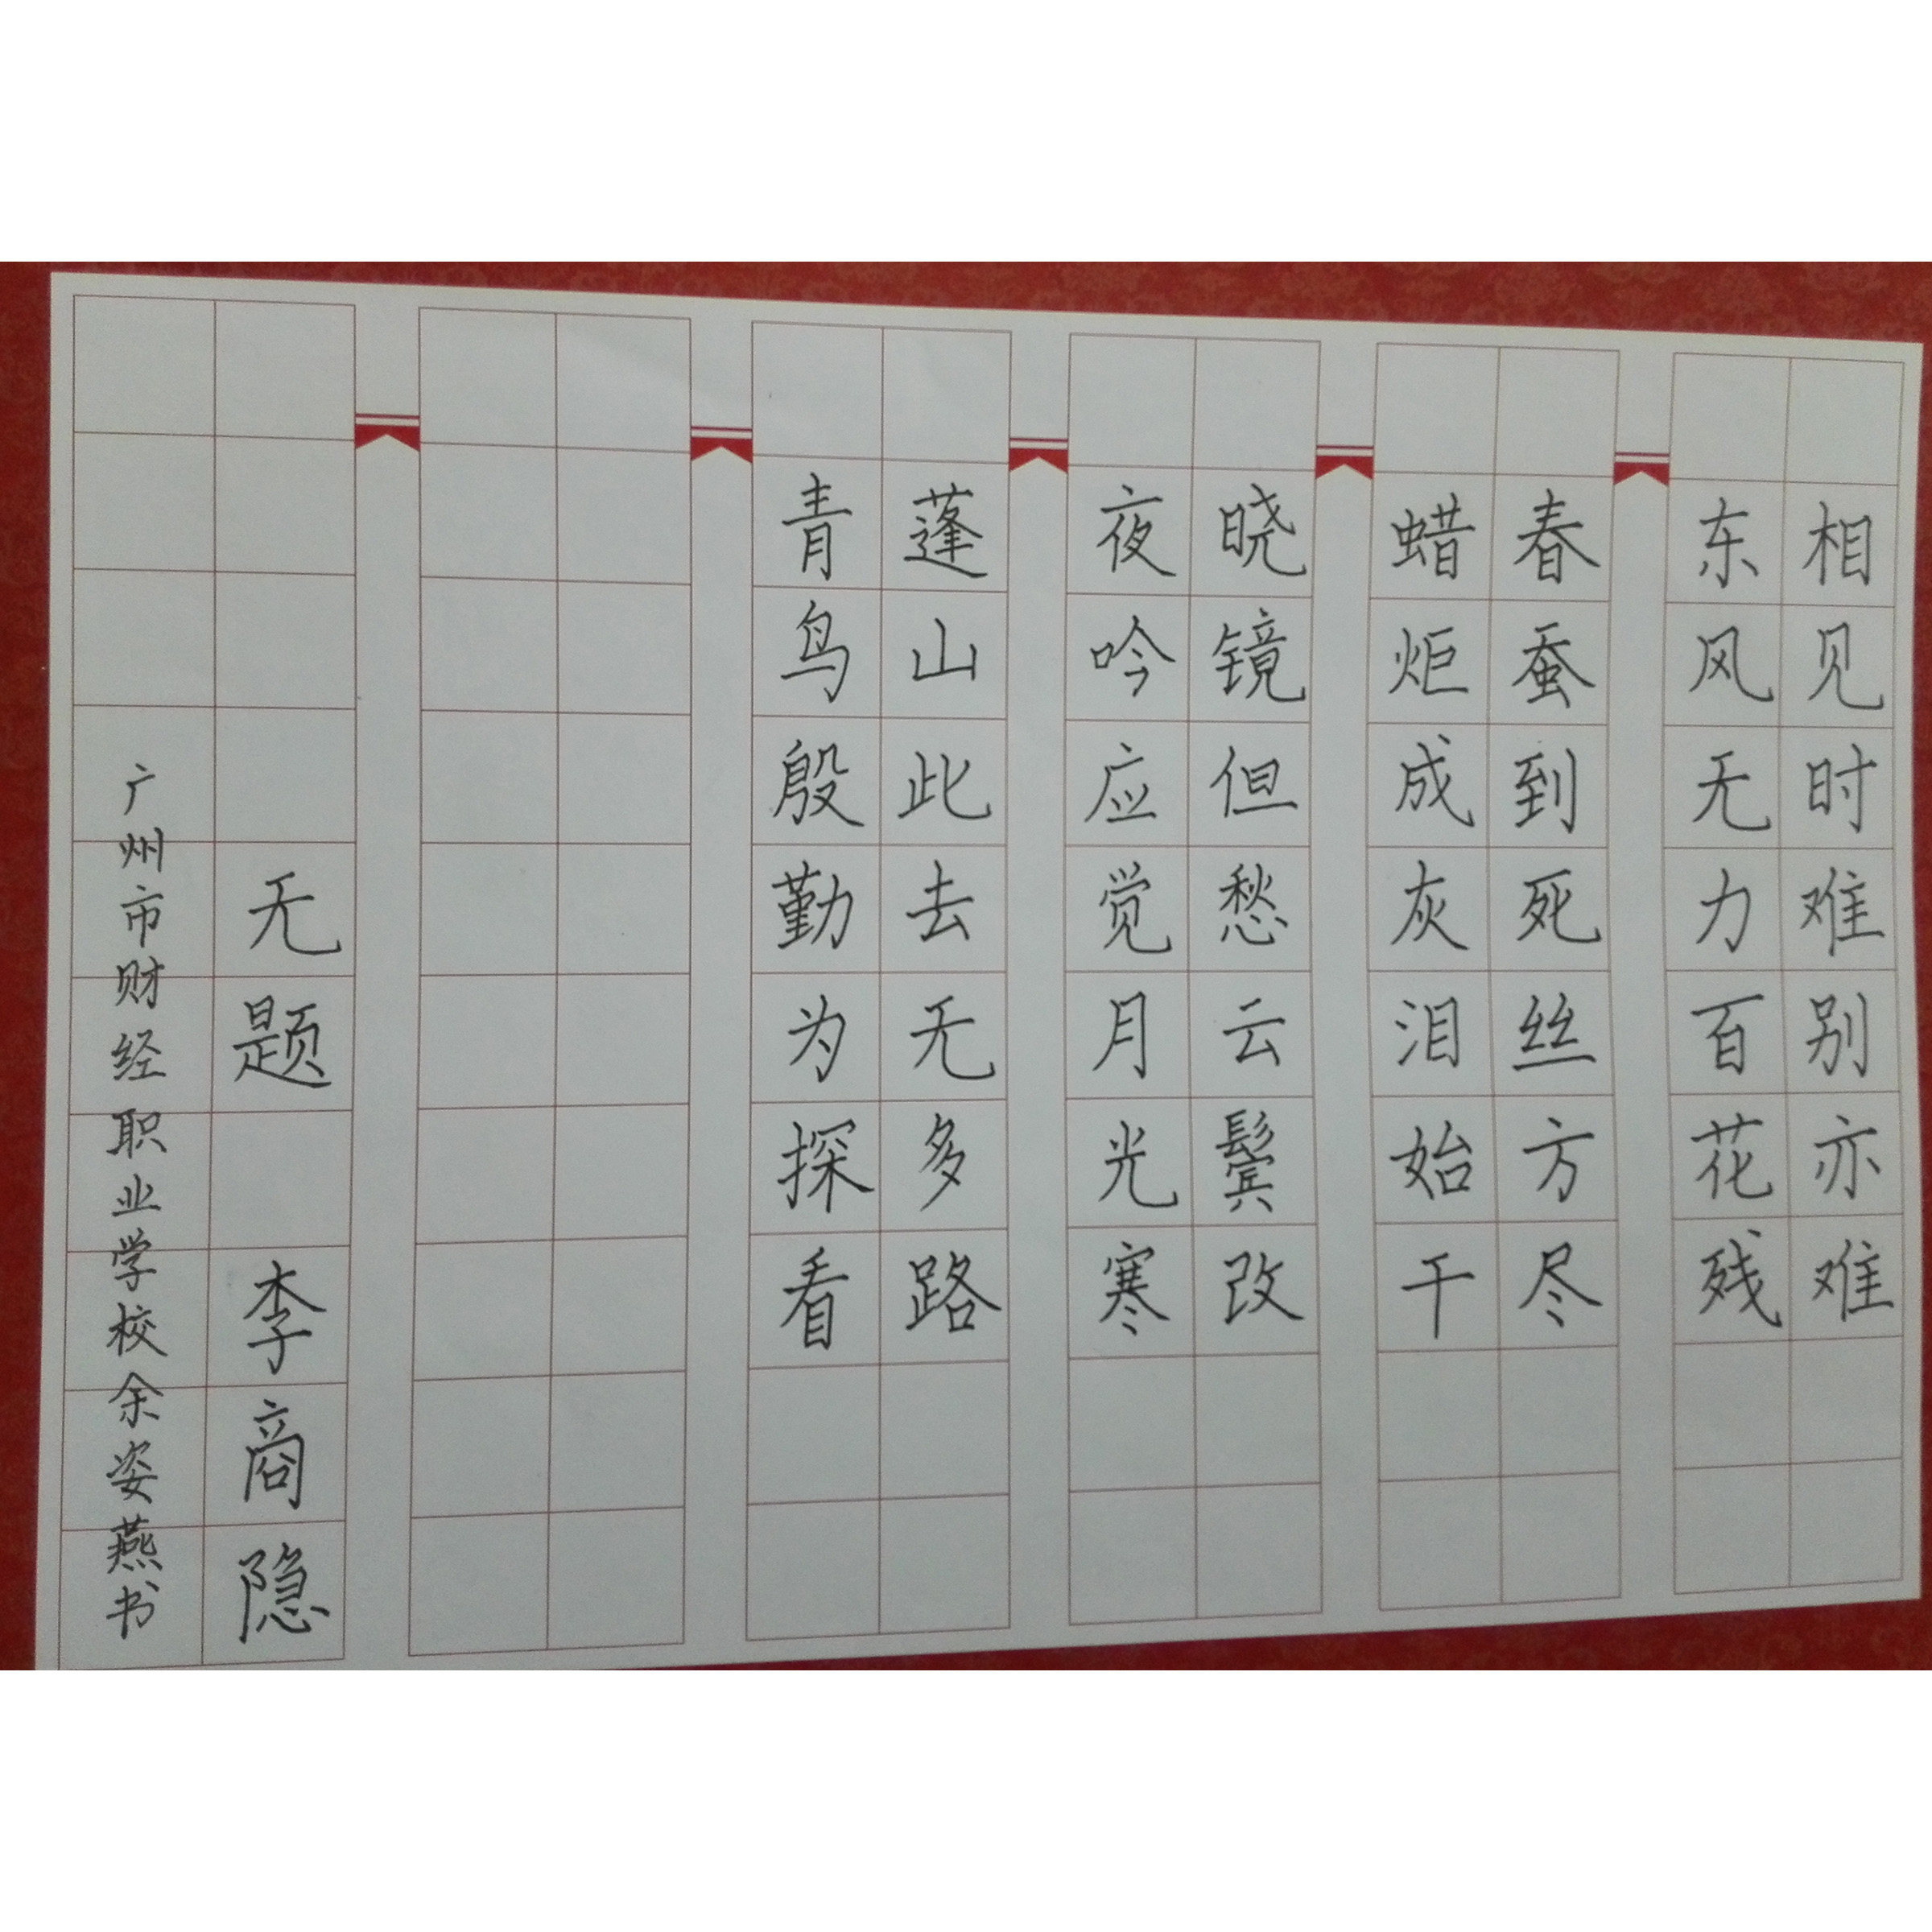 相见时难别亦难
东风无力百花残
春蚕到死丝方尽
蜡炬成灰泪始干
晓镜但愁云鬓改
夜吟应觉月光寒
蓬山此去无多路
青鸟殷勤为探看
无题 李商隐
广州市财经职业学校余姿燕书